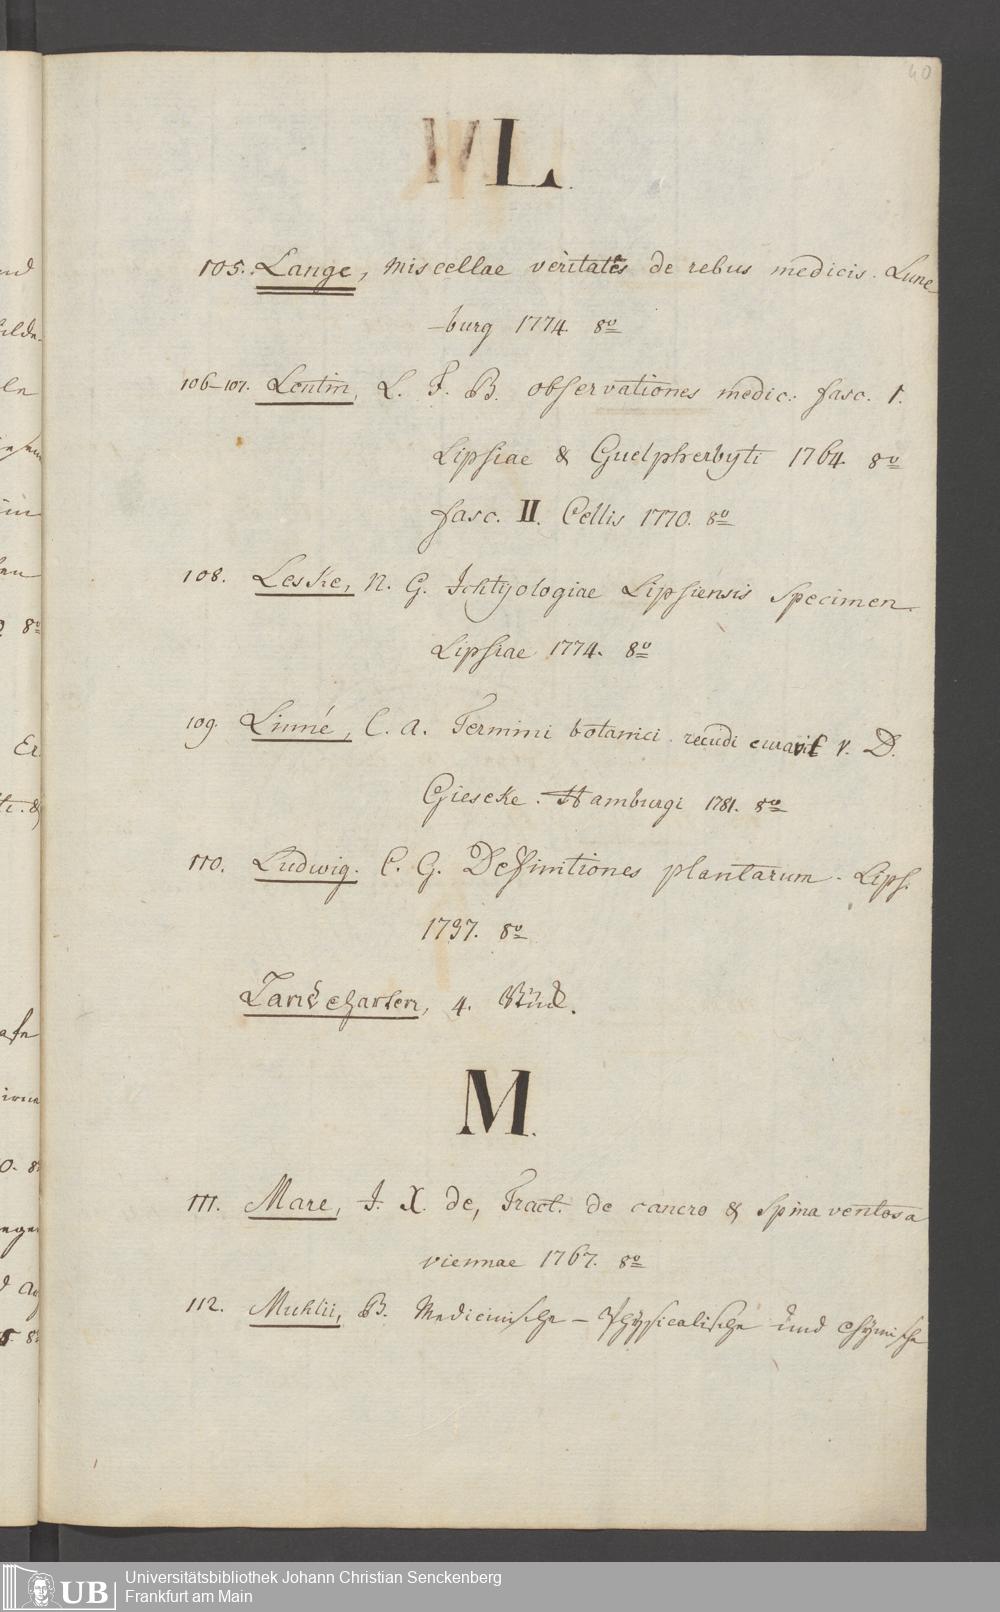 40
L.
105. Lange, Miscellae veritates de rebus medicis. Lune
-burg 1774. 8º
106-107. Lentin, L. F. B. observationes medic: fasc. 1.
Lipsiae & Guelpherbyti 1764. 8º
fasc. II. Cellis 1770. 8º
108. Leske, N. G. Ichtyologiae Lipsiensis Specimen
Lipsiae 1774. 8º
109. Linné, C. A. Termini botanici recudi curavit P. D.
Giesecke. Hamburgi 1781. 8º
110. Ludwig. C. G. Definitiones plantarum. Lips.
1737. 8º
Landcharten, 4. Stück.
M.
111. Mare, J. X. de, Tract. de cancro & Spina ventosa
viennae 1767. 8º
112. Muhlii, B. Medicinische - Physicalische und chymische
Universitätsbibliothek Johann Christian Senckenberg
UB
Frankfurt am Main